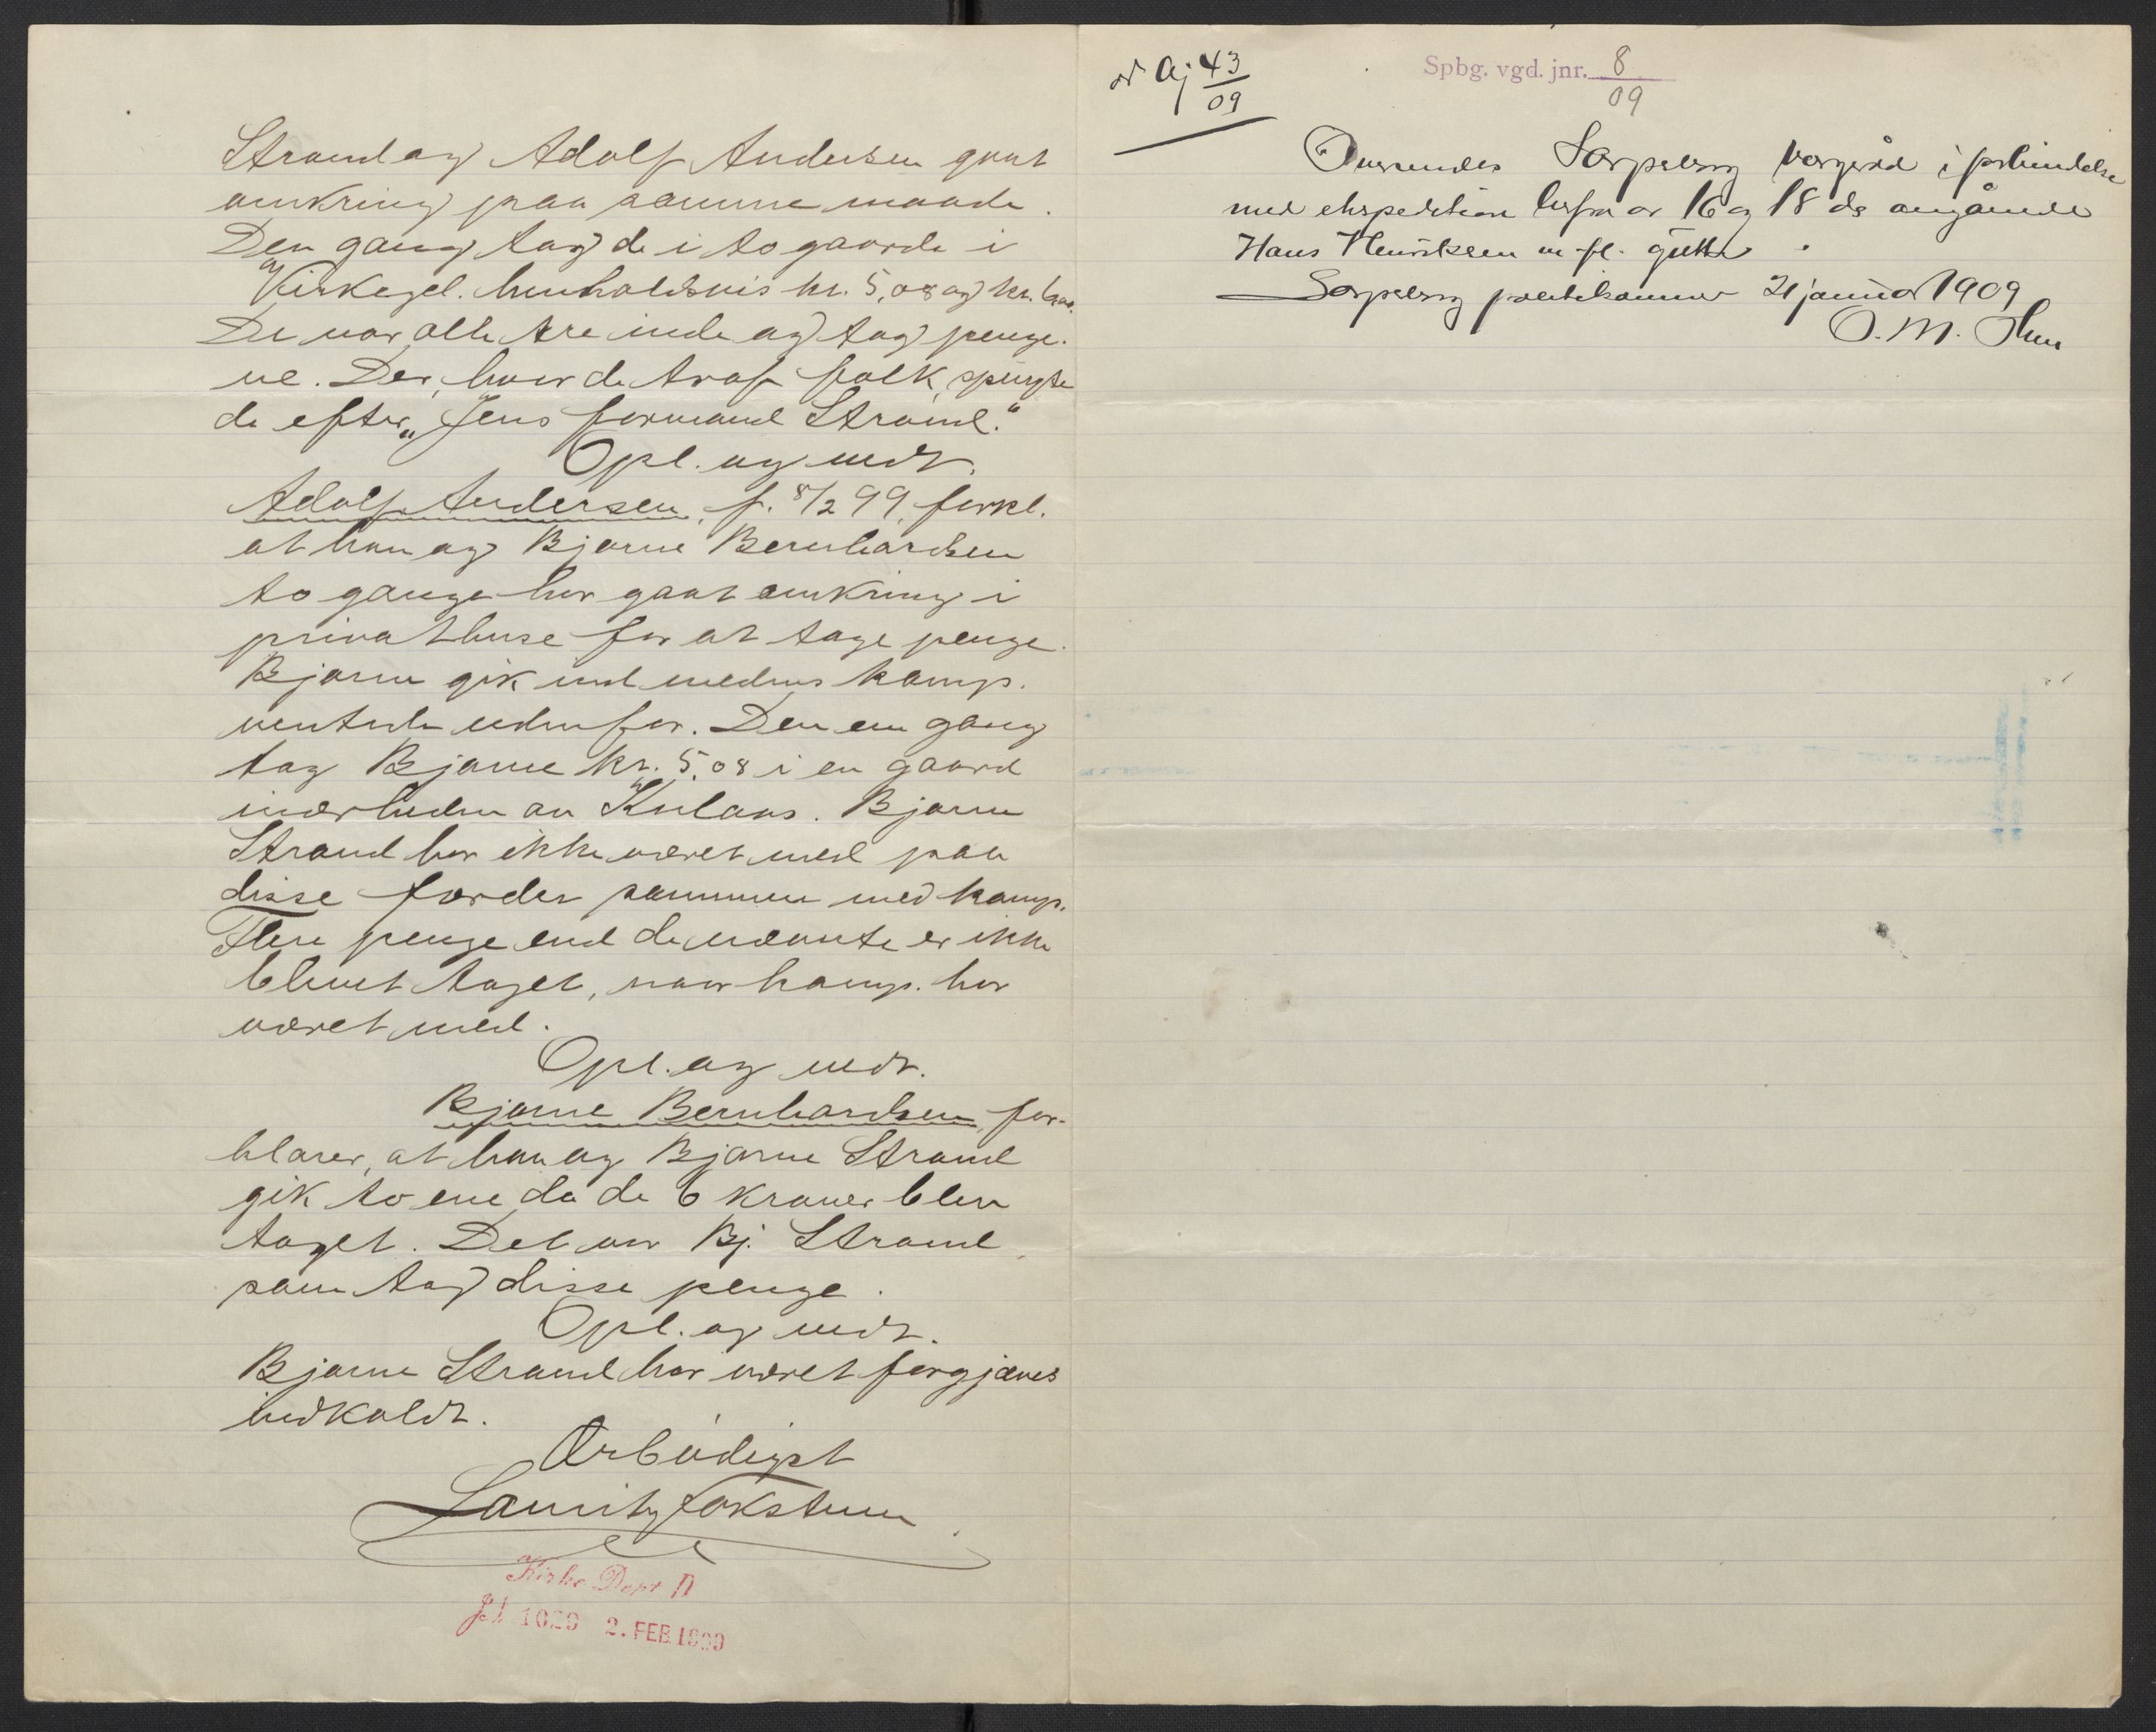 Strand og Adolf Andersen gaat
omkring paa samme maade.
Den gang tog de i to gaarde i
Kirkegd. henholdsvis kr. 5,08 og kr. 6,00.
De var alle tre inde og tog penge-
ne. Der, hvor de traf folk, spurgte
de efter „Jens formand Strand."
Opl. og vedt.
Adolf Andersen, f. 8/2 99, forkl.
at han og Bjarne Bernhardsen
to gange har gaat omkring i
privathuse for at tage penge.
Bjarne gik ind medens komp.
ventede udenfor. Den ene gang
tog Bjarne kr. 5,08 i en gaard
i nærheden av Kulaas. Bjarne
Strand har ikke været med paa
disse færder sammen med komp.
Flere penge end de nævnte er ikke
blevet taget, naar komp. har
været med.
Opl. og vedt.
Bjarne Bernhardsen, for-
klarer, at han og Bjarne Strand
gik to ene da de 6 kroner blev
taget. Det var Bj. Strand,
som tog disse penge.
Opl. og vedt.
Bjarne Strand har været forgjæves
indkaldt.
Ærbødigst
Lauritz Tokstum
Kirke Dept D
Jd 1029 2. FEB. 1909
Aj 43/09
Spbg. vgd. jnr. 8/09
Oversendes Sarpsborg vergeråd i forbindelse
med ekspedition herfra av 16 og 18 ds angående
Hans Henriksen m. fl. gutter.
Sarpsborg politikammer 21 januar 1909
O. M. Thu